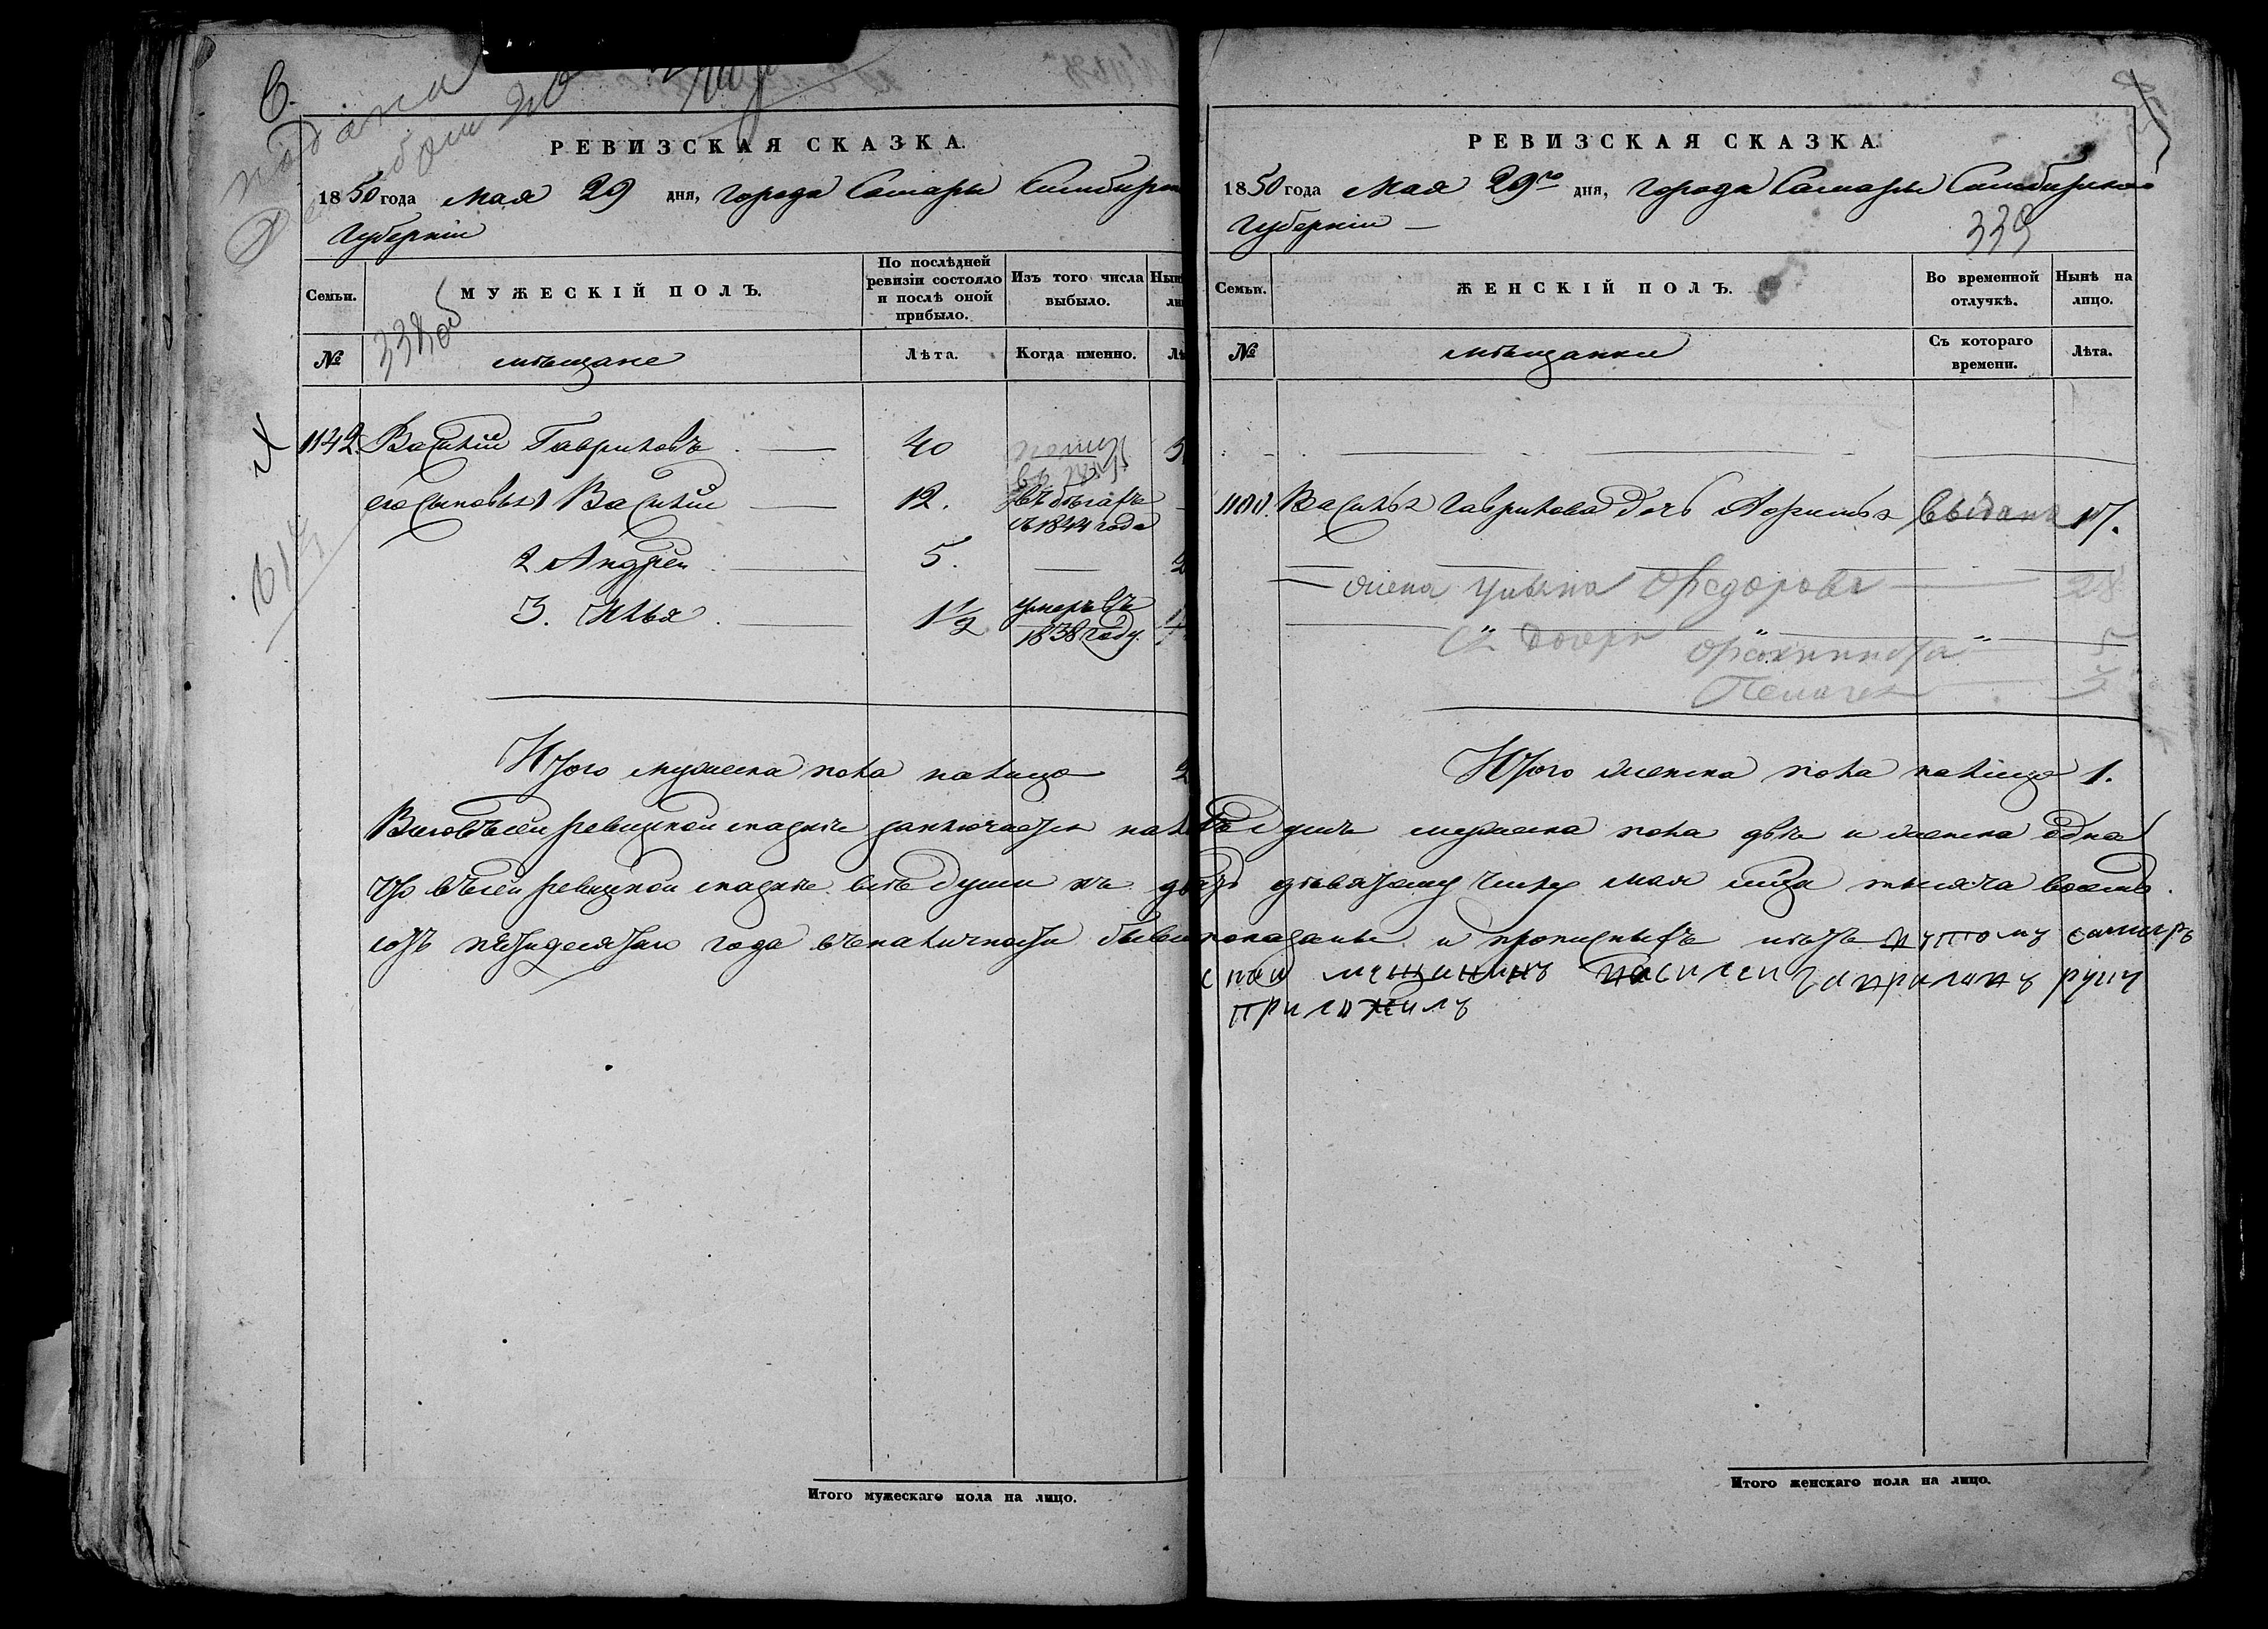 С.
подана
РЕВИЗСКАЯ СКАЗКА.
1850 года Мая 29 дня, города Самары Симбирск
Губернiи
Семьи.
МУЖЕСКIЙ ПОЛЪ.
По послѣдней ревизiи состояло и послѣ оной прибыло.
Изъ того числа выбыло.
338об
№
мѣщане
Лѣта.
Когда именно.
1142. Василiй Гавриловъ 40
его сыновья 1 Василiй 12. въ бѣгахъ
съ 1844 года
2 Андрей 5.
3. Илья 1 1/2 умеръ въ
1838 году.
Итого мужеска пола налицо
Итого мужескаго пола на лицо.
РЕВИЗСКАЯ СКАЗКА.
1850 года Мая 29го дня, города Самары Симбирской
Губернiи
339
Семьи.
ЖЕНСКIЙ ПОЛЪ.
Во временной отлучкѣ.
Нынѣ на лицо.
№
мѣщанки
Съ котораго времени.
Лѣта.
Василья Гаврилова дочь выдана 17.
жена Ульяна Федорова 28
дочери 5
Пелагея 3
Итого женска пола налицо 1.
Всего въ сей ревизской сказке заключается душъ мужеска пола две и женска одна
что въ сей ревизской сказке все души къ девятому числу мая мѣца тысяча восемь
сотъ пятидесятаго года въ наличности показаны и прописныхъ нѣтъ
мещининъ василеи гаврилавъ руку
приложилъ
Итого женскаго пола на лицо.